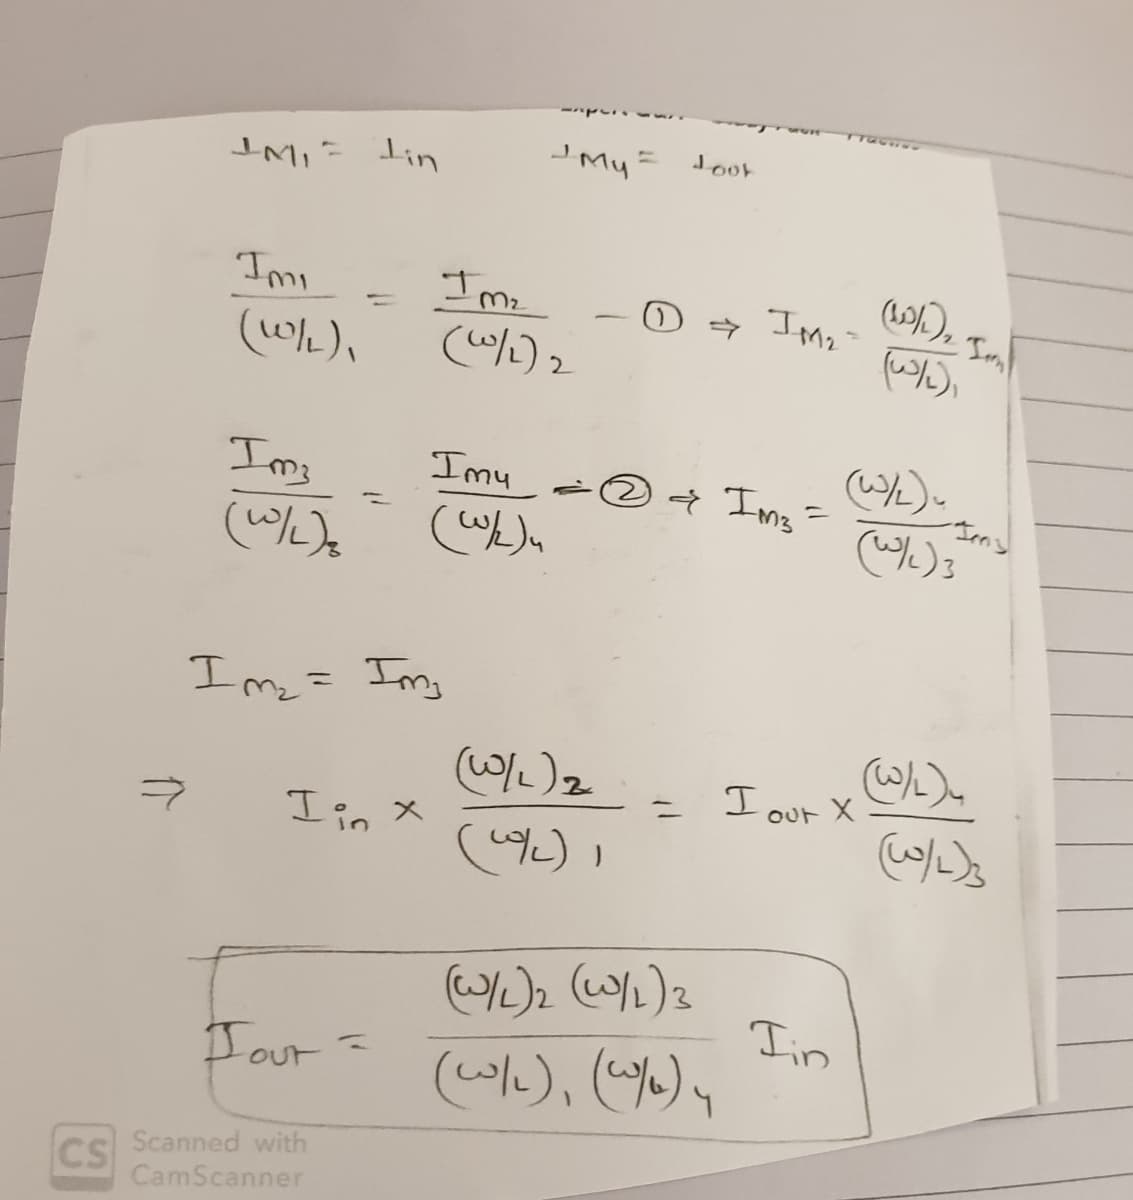 I_M1 = I_in    I_M4 = I_out
I_m1/(W/L)_1 = I_m2/(W/L)_2 - ① ⇒ I_M2 = (W/L)_2/(W/L)_1 I_m1
I_m3/(W/L)_3 = I_m4/(W/L)_4 - ② → I_M3 = (W/L)_4/(W/L)_3 I_m3
I_m2 = I_m3
⇒ I_in × (W/L)_2/(W/L)_1 = I_out × (W/L)_4/(W/L)_3
I_out = (W/L)_2 (W/L)_3/(W/L)_1 (W/L)_4 I_in
CS Scanned with
CamScanner